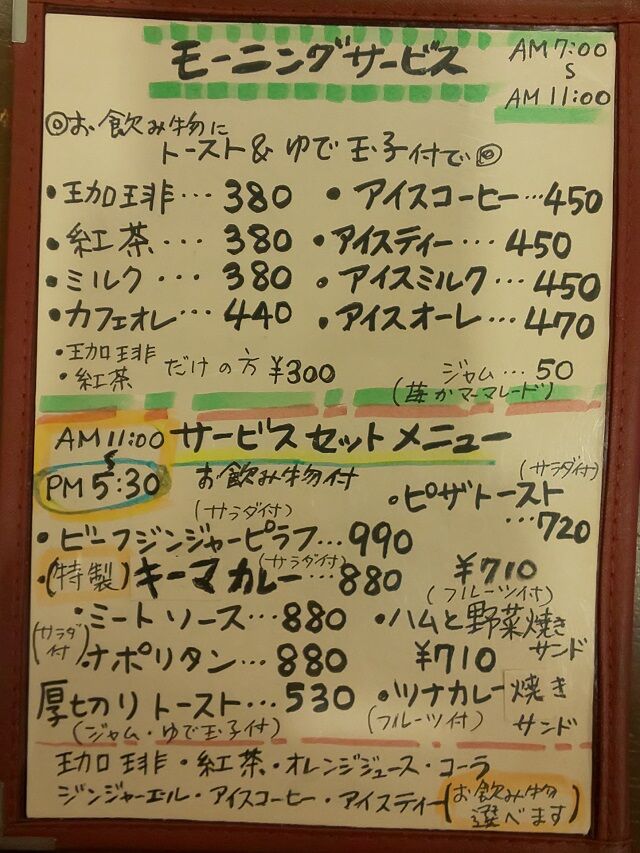 モーニングサービス AM 7:00
S
AM 11:00
◎お飲み物に
トースト&ゆで玉子付で◎
・珈琲…380 ・アイスコーヒー…450
・紅茶…380 ・アイスティー…450
・ミルク…380 ・アイスミルク…450
・カフェオレ…440 ・アイスオーレ…470
・珈琲
・紅茶 だけの方 ¥300
ジャム…50
(苺かマーマレード)
AM 11:00 サービスセットメニュー
S
PM 5:30 お飲み物付
(サラダ付)
・ピザトースト
…720
(サラダ付)
・ビーフジンジャーピラフ…990
(サラダ付)
・(特製)キーマカレー…880
¥710
(フルーツ付)
・ミートソース…880 ・ハムと野菜焼き
サンド
(サラダ付)
・ナポリタン…880 ¥710
厚切りトースト…530 ・ツナカレー焼き
サンド
(ジャム・ゆで玉子付) (フルーツ付)
珈琲・紅茶・オレンジジュース・コーラ
ジンジャーエール・アイスコーヒー・アイスティー(お飲み物
選べます)